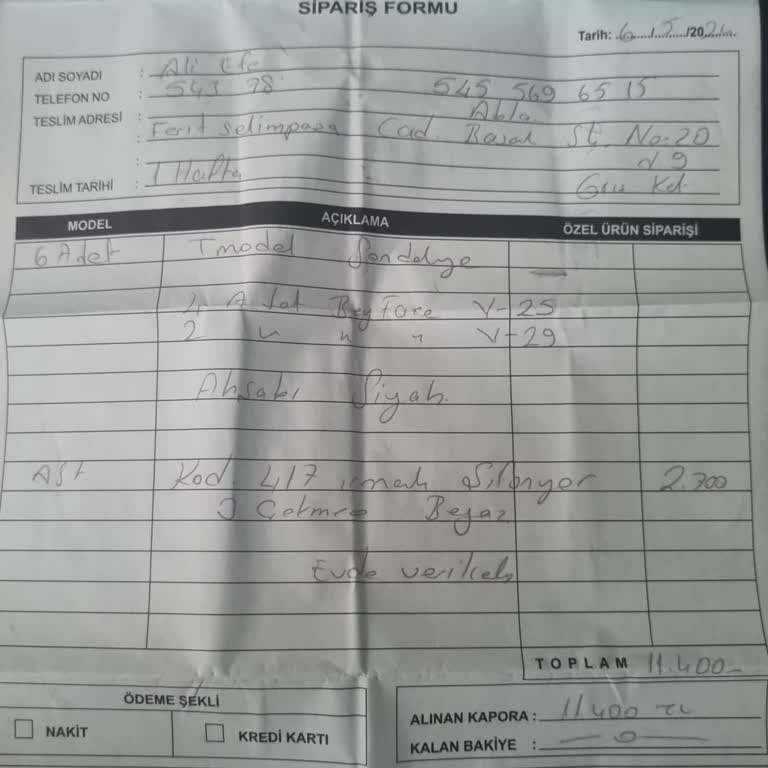 SİPARİŞ FORMU
Tarih: 6/5/2021
ADI SOYADI : Ali Efe
TELEFON NO : 543 98 545 569 65 15
Abla
TESLİM ADRESİ : Ferit Selimpaşa Cad. Başak St. No-20
: d 9
TESLİM TARİHİ : 1 Hafta
MODEL AÇIKLAMA ÖZEL ÜRÜN SİPARİŞİ
6 Adet T model Sandalye
4 V-25
2 " " " V-29
Ahşabı Siyah
Kod. 417 Şifonyer 2.700
3 Çekmece Beyaz
Evde
TOPLAM 11.400-
ÖDEME ŞEKLİ
NAKİT KREDİ KARTI
ALINAN KAPORA : 11.400 TL
KALAN BAKİYE : -0-